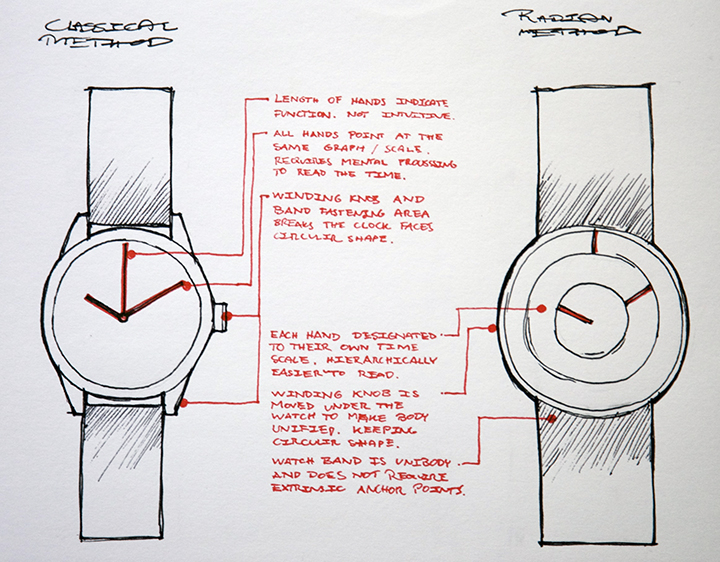 CLASSICAL
METHOD
RADIAN
METHOD
LENGTH OF HANDS INDICATE
FUNCTION. NOT INTUITIVE.
ALL HANDS POINT AT THE
SAME GRAPH / SCALE.
REQUIRES MENTAL PROUSSING
TO READ THE TIME.
WINDING KNOB AND
BAND FASTENING AREA
BREAKS THE CLOCK FACES
CIRCULAR SHAPE.
EACH HAND DESIGNATED
TO THEIR OWN TIME
SCALE. HIERARCHICALLY
EASIER TO READ.
WINDING KNOB IS
MOVED UNDER THE
WATCH TO MAKE BODY
UNIFIED. KEEPING
CIRCULAR SHAPE.
WATCH BAND IS UNIBODY
AND DOES NOT REQUIRE
EXTRINSIC ANCHOR POINTS.